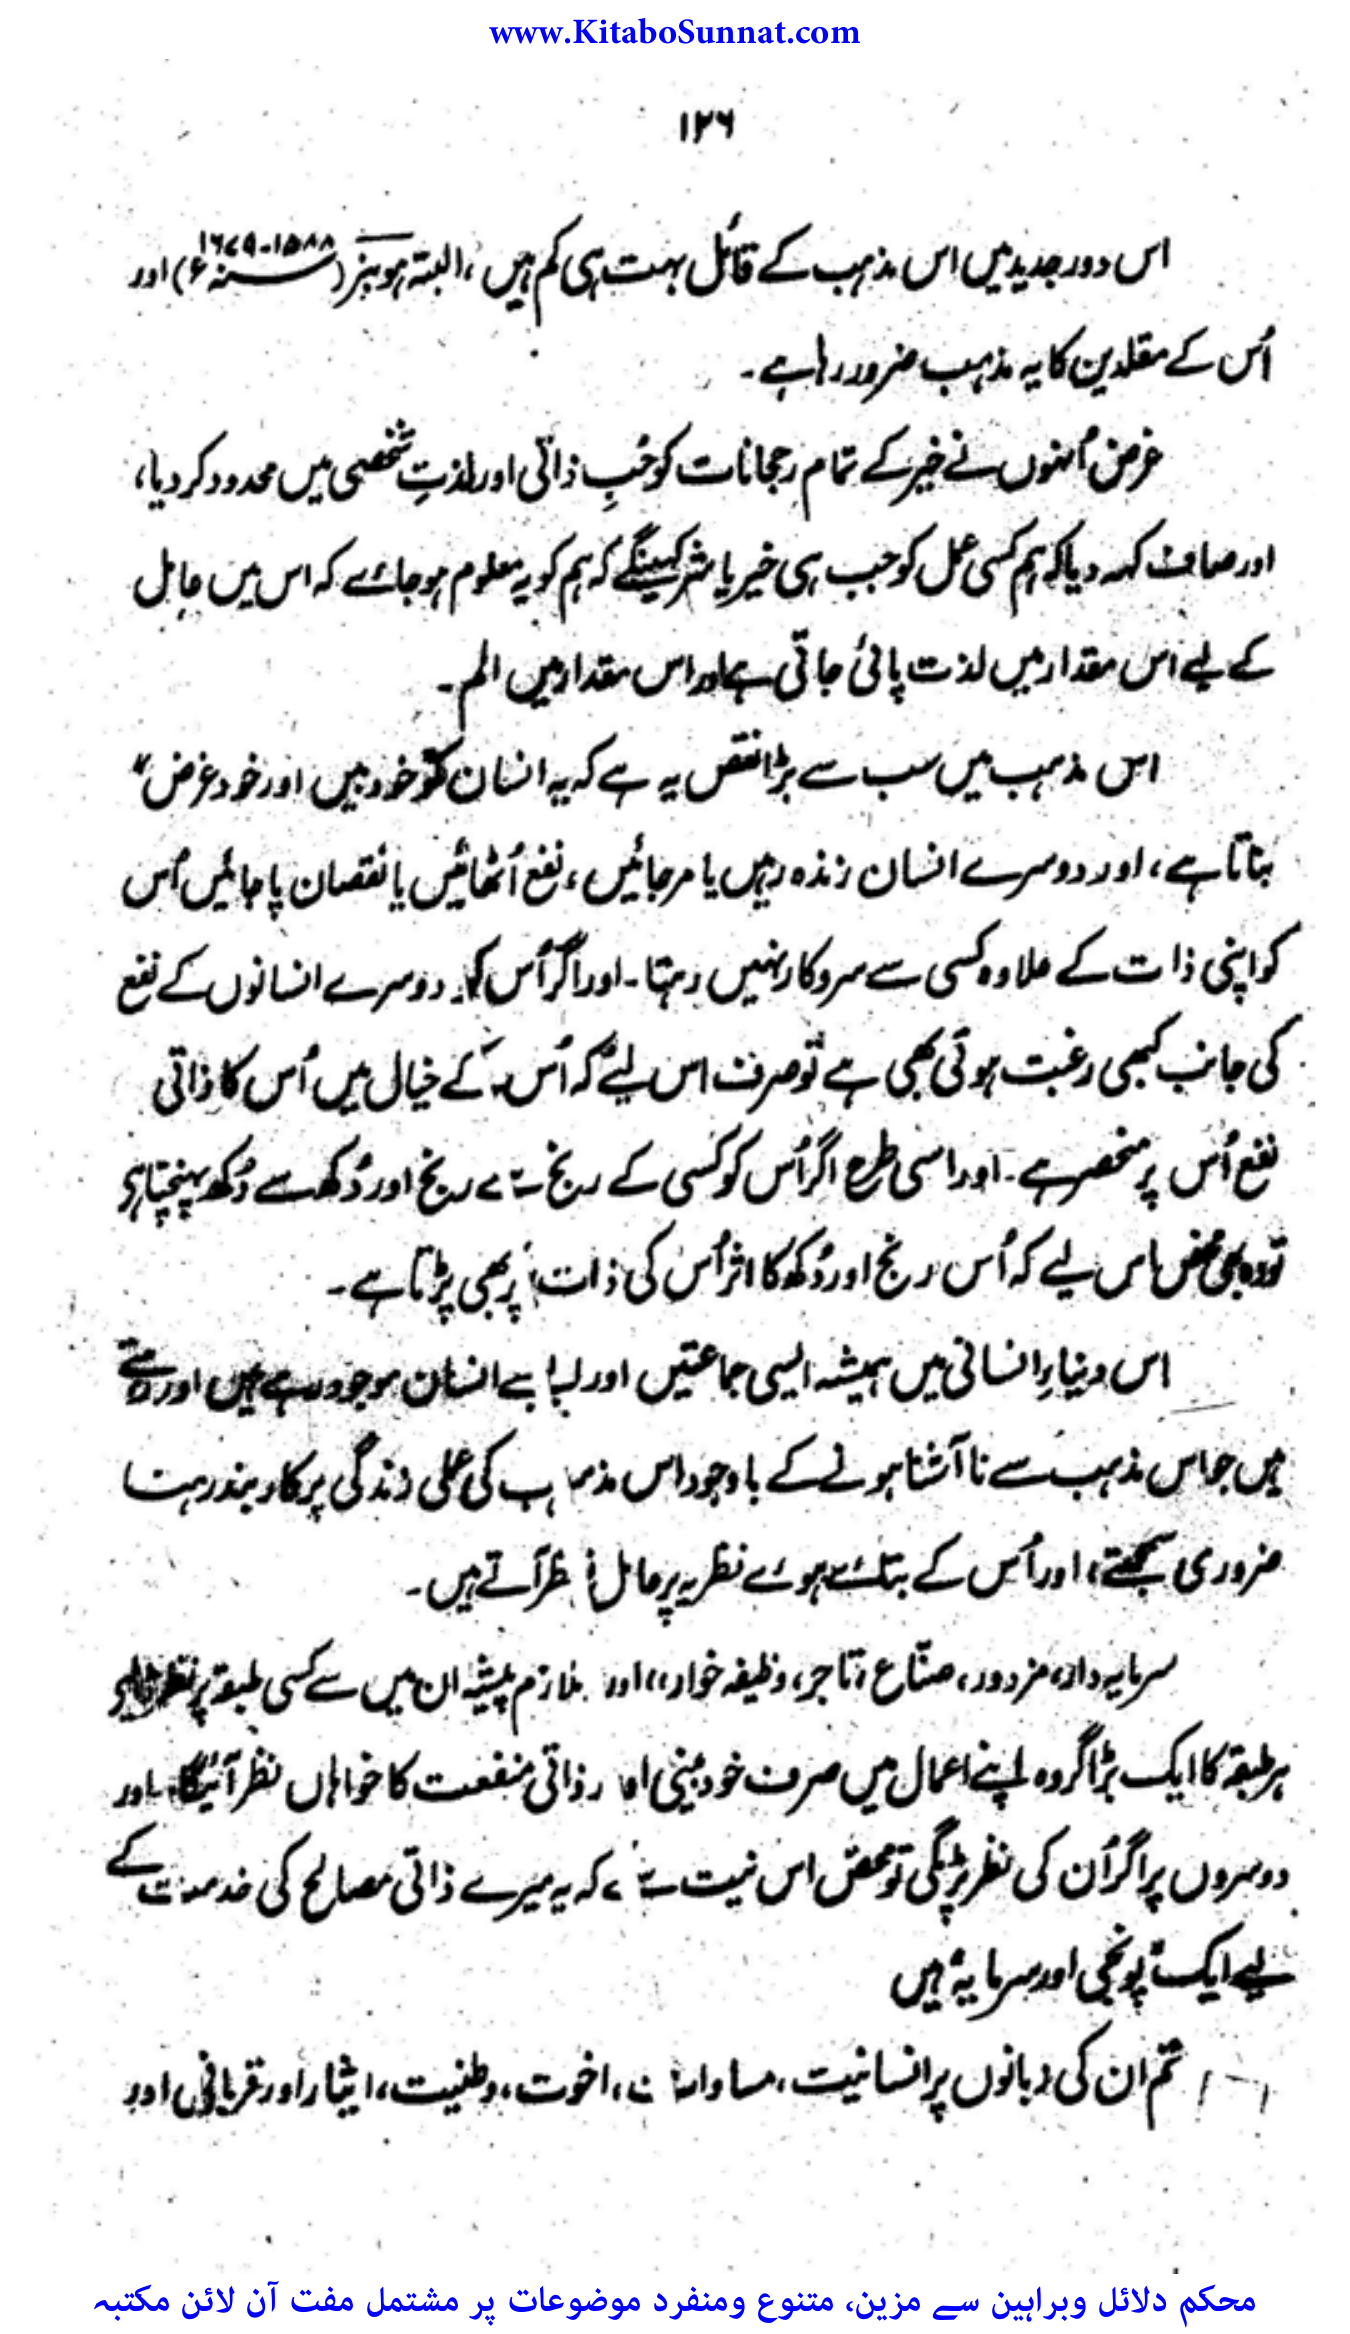 www.KitaboSunnat.com
۱۲۶
اس دور جدید میں اس مذہب کے قائل بہت ہی کم ہیں، البتہ ہوبز (۱۵۸۸-۱۶۷۹ سنہ ء) اور
اُس کے مقلدین کا یہ مذہب ضرور رہا ہے۔
غرض اُنہوں نے خیر کے تمام رجحانات کو حُبِ ذاتی اور لذتِ شخصی میں محدود کر دیا،
اور صاف کہہ دیا کہ ہم کسی عمل کو جب ہی خیر یا شر کہینگے کہ ہم کو یہ معلوم ہو جائے کہ اس میں عامل
کے لیے اس مقدار میں لذت پائی جاتی ہے اور اس مقدار میں الم۔
اس مذہب میں سب سے بڑا نقص یہ ہے کہ یہ انسان کو "خود بیں اور خود غرض"
بناتا ہے، اور دوسرے انسان زندہ رہیں یا مر جائیں، نفع اُٹھائیں یا نقصان پا جائیں اُس
کو اپنی ذات کے علاوہ کسی سے سروکار نہیں رہتا۔ اور اگر اُس کو دوسرے انسانوں کے نفع
کی جانب کبھی رغبت ہوتی بھی ہے تو صرف اس لیے کہ اُس کے خیال میں اُس کا ذاتی
نفع اُس پر منحصر ہے۔ اور اسی طرح اگر اُس کو کسی کے رنج سے رنج اور دُکھ سے دُکھ پہنچتا ہی
تو وہ بھی محض اس لیے کہ اُس رنج اور دُکھ کا اثر اُس کی ذات پر بھی پڑتا ہے۔
اس دنیاءِ انسانی میں ہمیشہ ایسی جماعتیں اور ایسے انسان موجود رہے ہیں اور رہتے
ہیں جو اس مذہب سے نا آشنا ہونے کے باوجود اس مذہب کی عملی زندگی پر کار بند رہنا
ضروری سمجھتے، اور اُس کے بتائے ہوئے نظریہ پر عامل نظر آتے ہیں۔
سرمایہ دار، مزدور، صنّاع، تاجر، وظیفہ خوار،، اور ملازم پیشہ ان میں سے کسی طبقہ پر نظر ڈالیے
ہر طبقہ کا ایک بڑا گروہ اپنے اعمال میں صرف خود بینی اور ذاتی منفعت کا خواہاں نظر آئیگا، اور
دوسروں پر اگر اُن کی نظر پڑیگی تو محض اس نیت سے کہ یہ میرے ذاتی مصالح کی خدمت کے
لیے ایک "پونجی اور سرمایہ" ہیں
تم ان کی زبانوں پر انسانیت، مساوات، اخوت، وطنیت، ایثار اور قربانی اور
محکم دلائل وبراہین سے مزین، متنوع ومنفرد موضوعات پر مشتمل مفت آن لائن مکتبہ